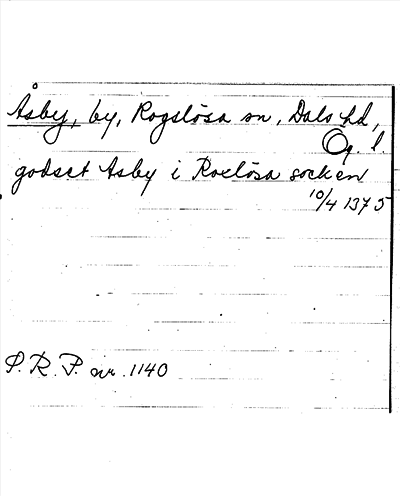 Åsby, by, Rogslösa sn, Dals hd,
Ög. l
godset Asby i Roclösa socken
10/4 1375
S. R. P. nr. 1140